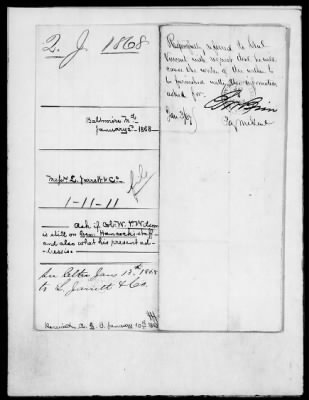 2. J 1868
Baltimore Md.
January 2d 1868.
Messrs L. Jarrett & Co.
1-11-11
Ask if Col. W. P. Wilson
is still on Gen. Hancock's staff
and also what his present ad-
dress is.
See letter Jany 13th 1868
to L. Jarrett & Co.
Received A. G. O. January 10th 1868
Respectfully referred to
with request that he will
cause the writer of the within to
be furnished with the information
asked for.